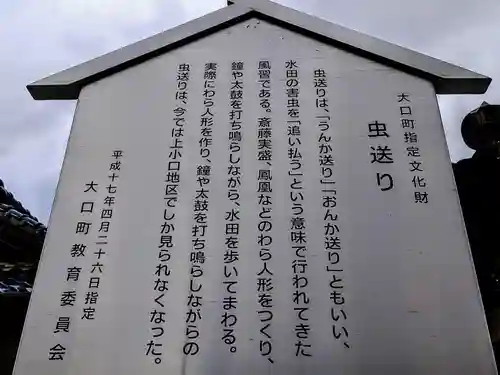 大口町指定文化財
虫送り
虫送りは、「うんか送り」「おんか送り」ともいい、
水田の害虫を「追い払う」という意味で行われてきた
風習である。斎藤実盛、鳳凰などのわら人形をつくり、
鐘や太鼓を打ち鳴らしながら、水田を歩いてまわる。
実際にわら人形を作り、鐘や太鼓を打ち鳴らしながらの
虫送りは、今では上小口地区でしか見られなくなった。
平成十七年四月二十六日指定
大口町教育委員会